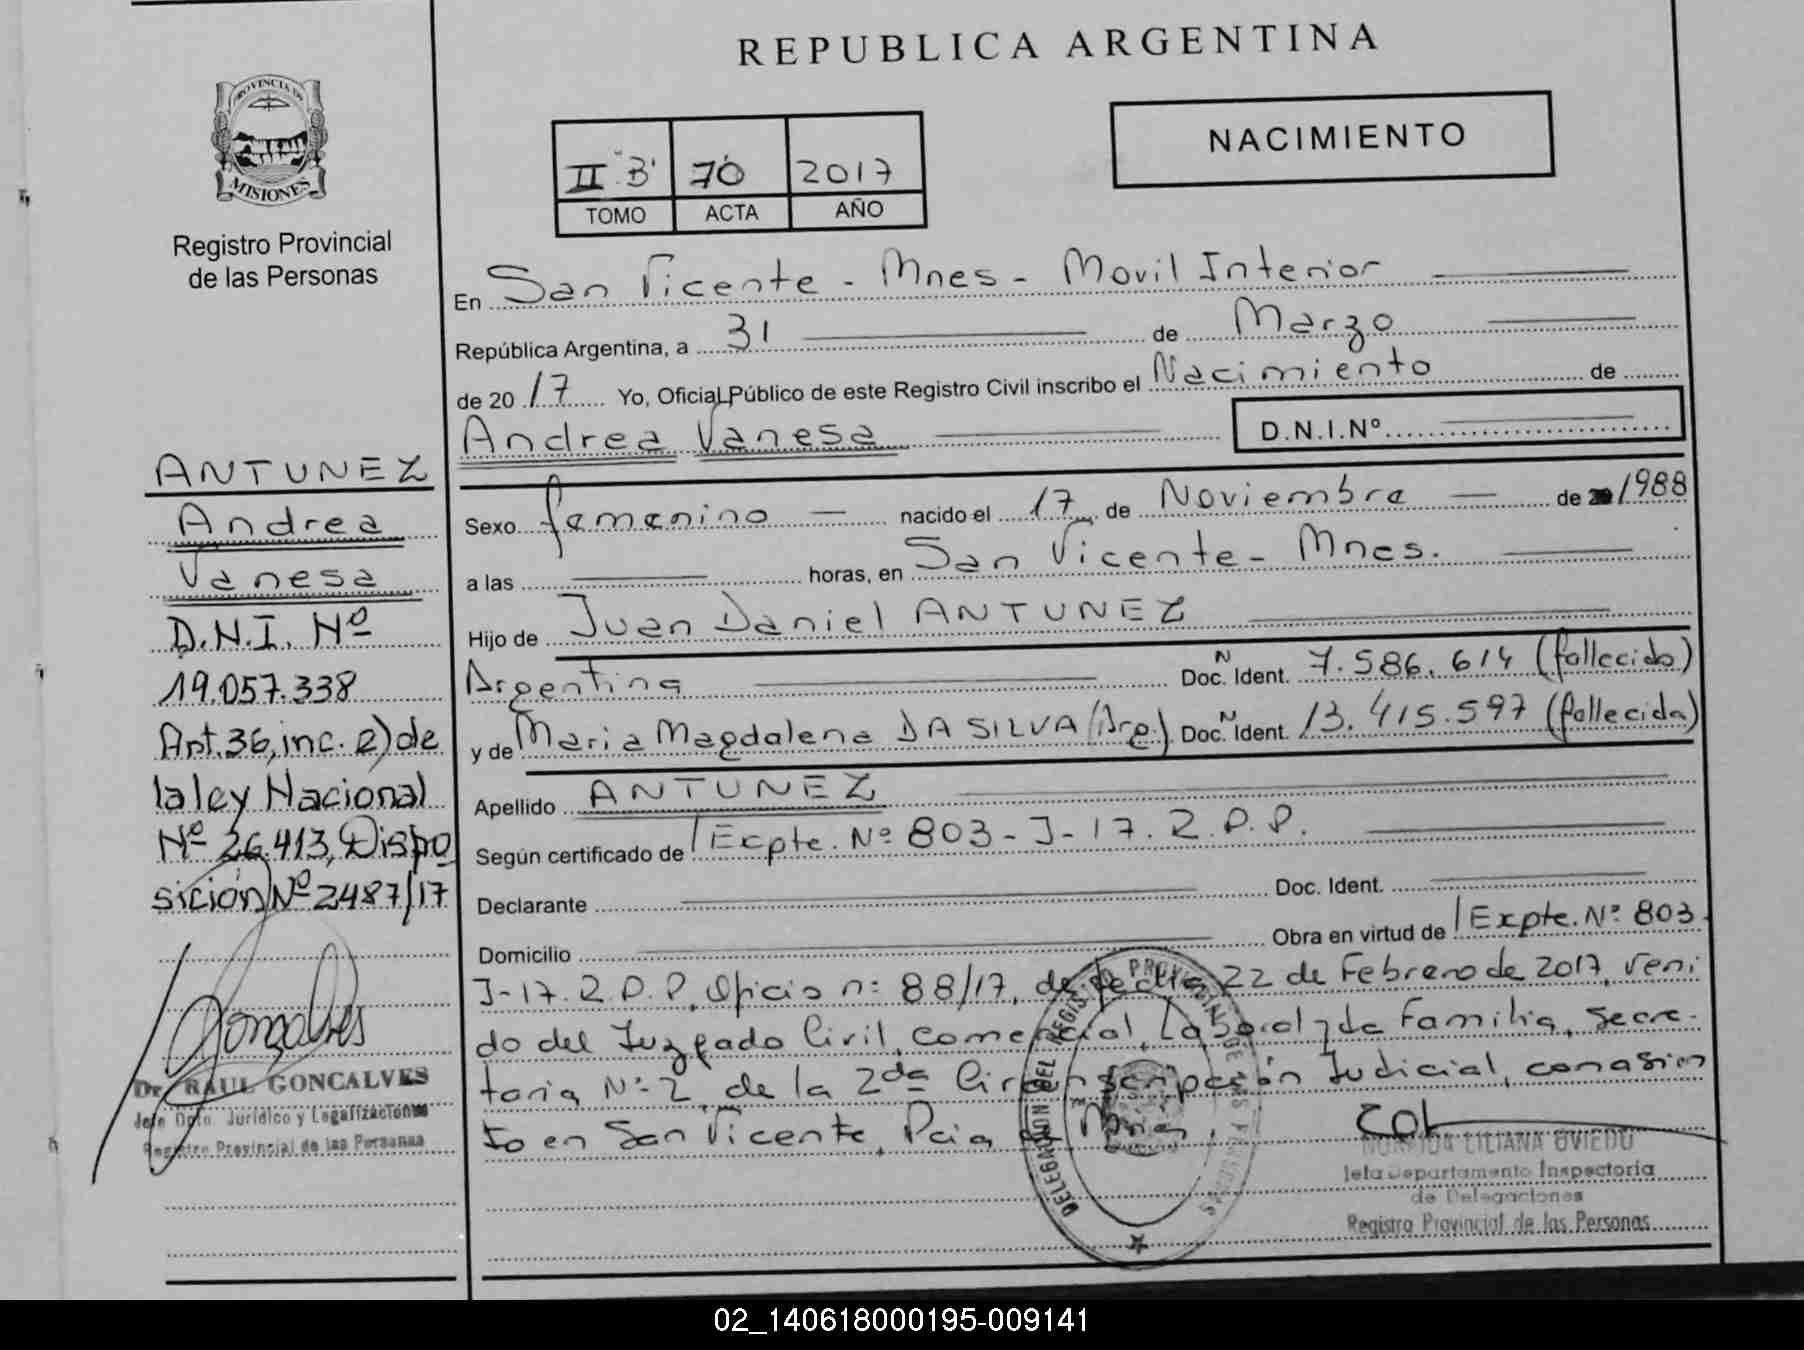 REPUBLICA ARGENTINA
PROVINCIA DE
MISIONES
Registro Provincial
de las Personas
NACIMIENTO
II "B" 70 2017
TOMO ACTA AÑO
En San Vicente - Mnes - Movil Interior
República Argentina, a 31 de Marzo
de 2017 Yo, Oficial Público de este Registro Civil inscribo el Nacimiento de
Andrea Vanesa D.N.I.Nº
Sexo femenino nacido el 17 de Noviembre de 1988
a las horas, en San Vicente - Mnes.
Hijo de Juan Daniel ANTUNEZ
Argentina Doc. N Ident. 7.586.614 (fallecido)
y de Maria Magdalena DA SILVA (Arg.) Doc. N Ident. 13.415.597 (fallecida)
Apellido ANTUNEZ
Según certificado de Expte. Nº 803-J-17. R.P.P.
Declarante Doc. Ident.
Domicilio Obra en virtud de Expte. Nº 803
J-17. R.P.P. Oficio nº 88/17, de fecha 22 de Febrero de 2017, veni
do del Juzgado Civil, Comercial, Laboral y de Familia, Secre-
taria Nº 2, de la 2da Circunscripción Judicial, con asien
to en San Vicente, Pcia
ANTUNEZ
Andrea
Vanesa
D.N.I. Nº
19.057.338
Art. 36, inc. e) de
la ley Nacional
Nº 26.413, Dispo
sición Nº 2487/17
Gonzalves
Dr. RAUL GONCALVES
Jefe Dpto. Jurídico y Legalizaciones
Registro Provincial de las Personas
DELEGACION DEL REGISTRO PROVINCIAL DE LAS PERSONAS
LILIANA OVIEDO
Jefa Departamento Inspectoria
de Delegaciones
Registro Provincial de las Personas
02_140618000195-009141